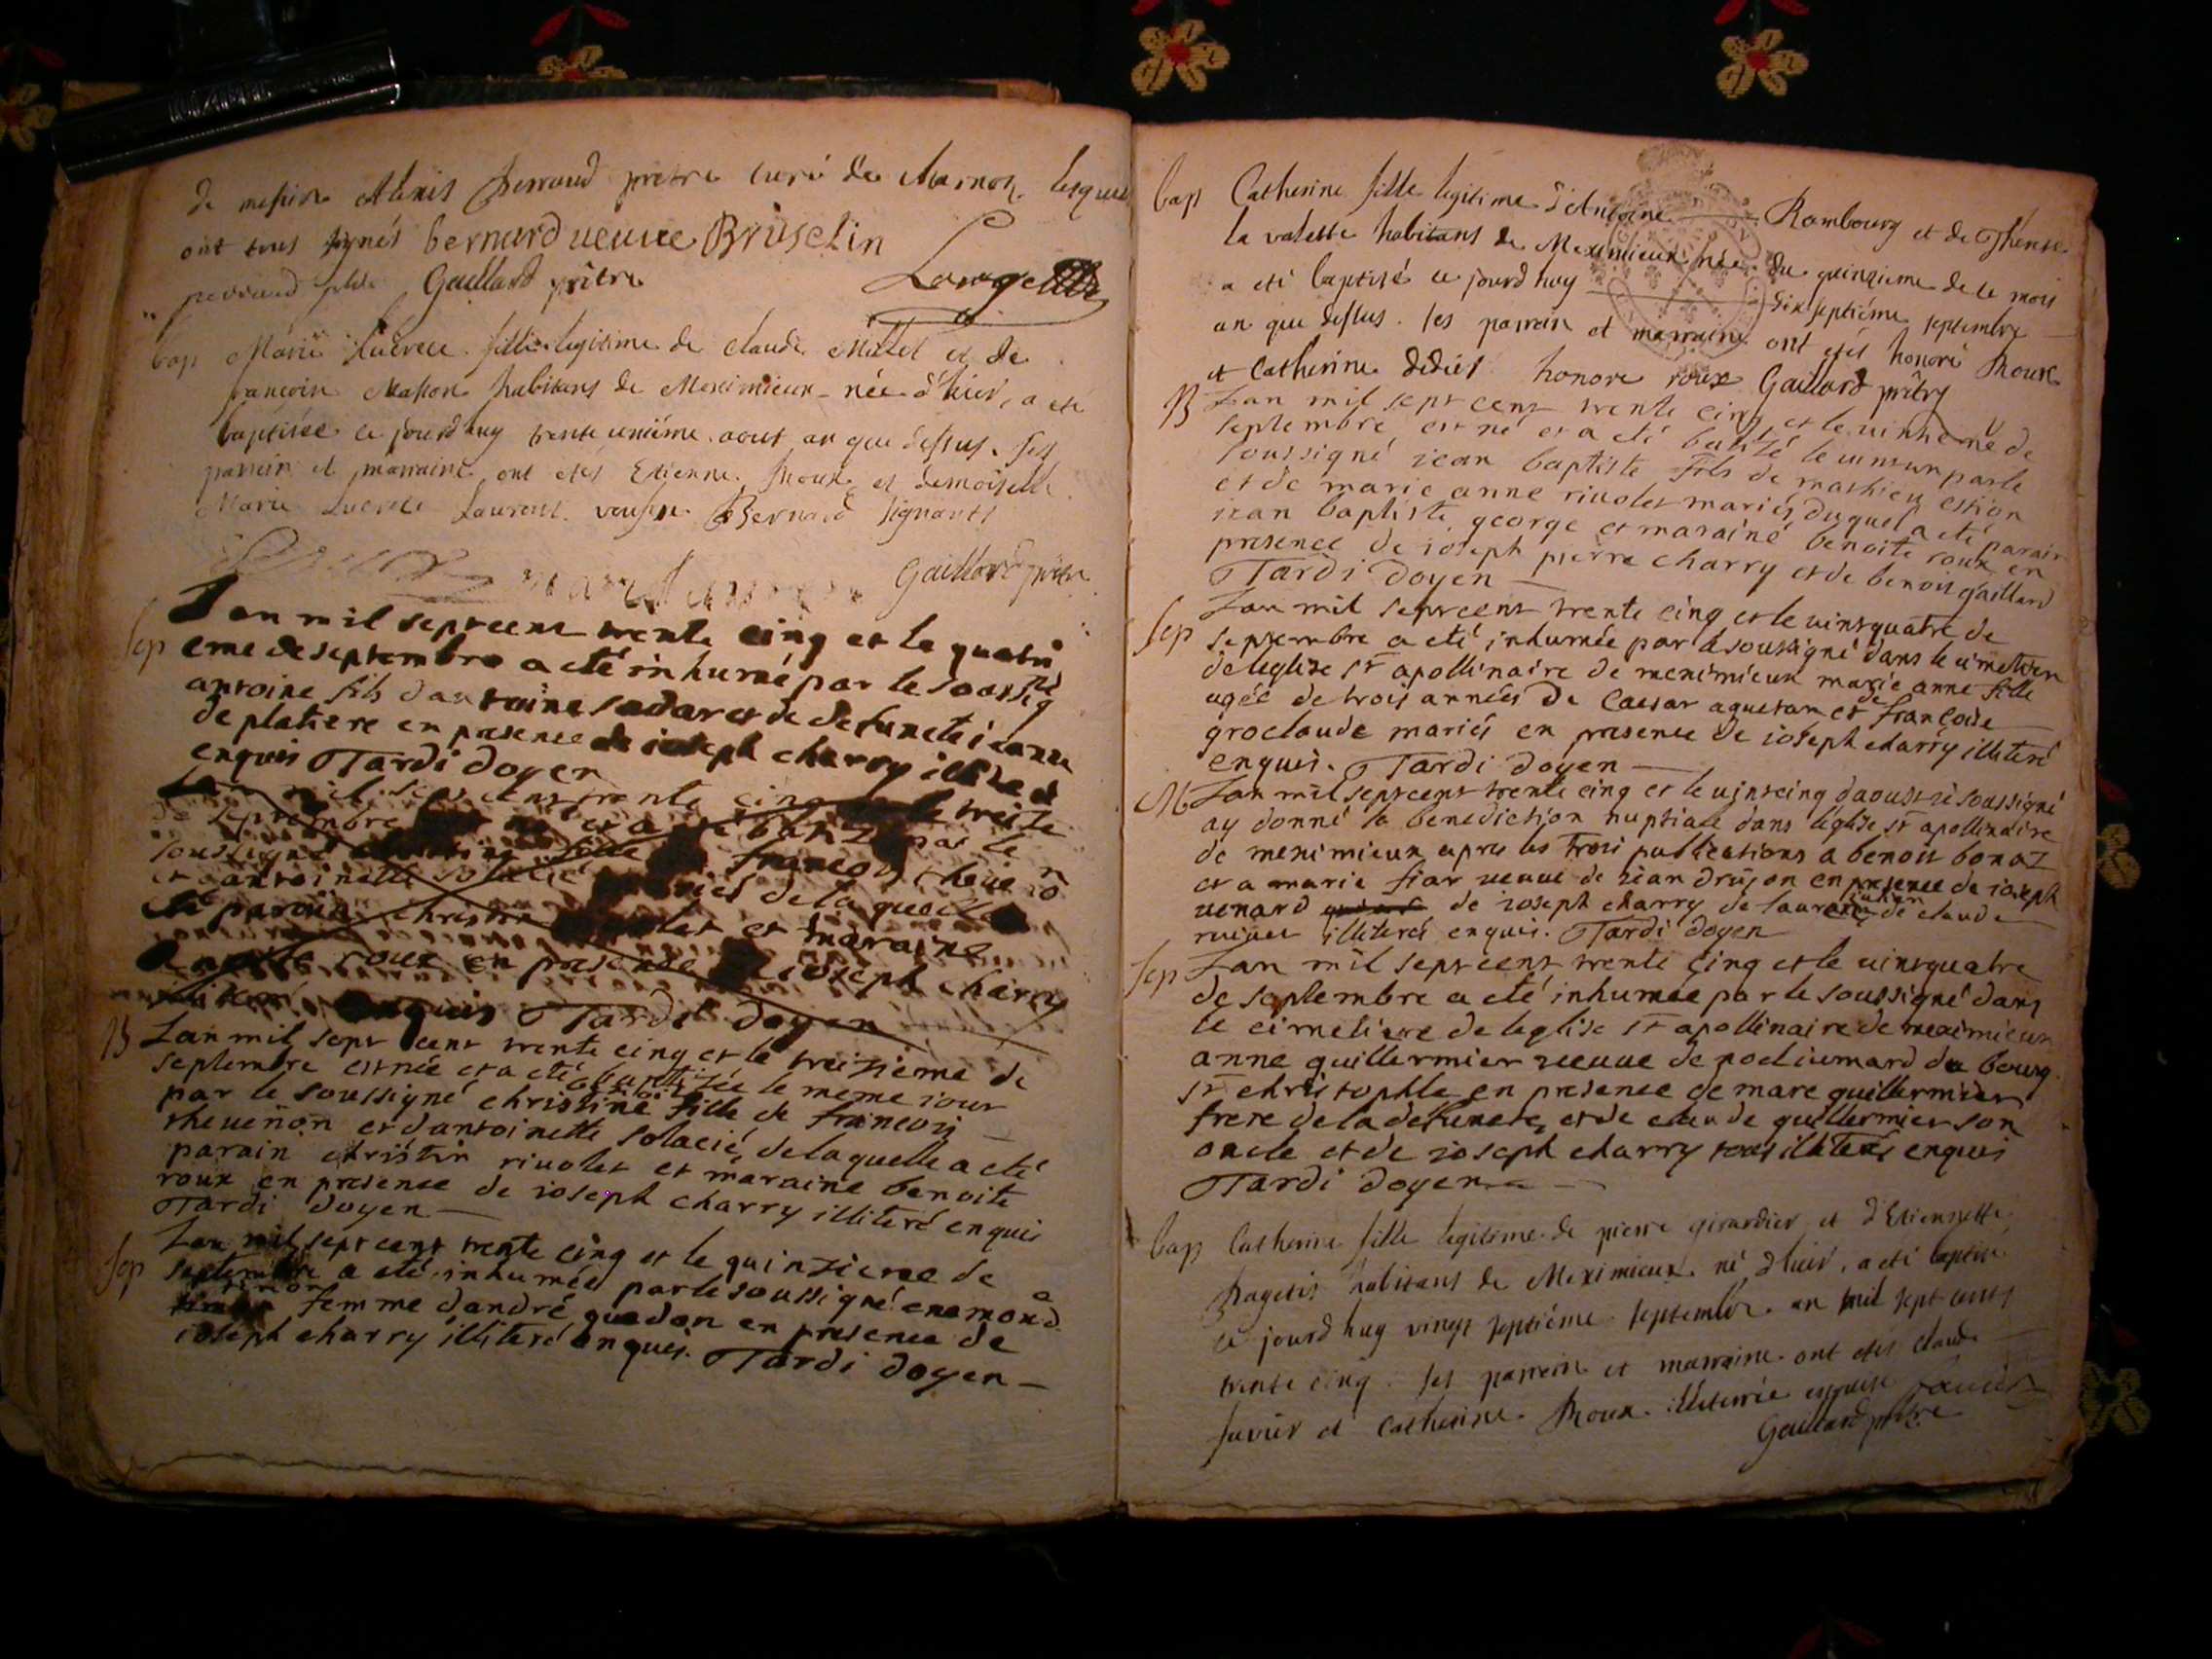 de messire Alexis Perraud prêtre curé de Marnos, lesquels
ont tous signés bernard veuve Bruselin
Gaillard prêtre
bap Marie Lucrece fille legitime de claude Millet et de
francoise Masson habitans de Meximieux née d'hier, a eté
baptisée ce jourd huy trente unième aout an que dessus. Ses
parrein et marraine ont etés Etienne Roux et demoiselle
Marie Lucrece Laurent Bernard signants
Gaillard prêtre
Sep Lan mil septcent trente cinq et le quatri
eme deseptembre a eté inhumé par le soussigné
antoine fils dantoine sadar et de defuncte ieanne
de platiere en presence de ioseph charry illiteré
enquis Tardi doyen
Lan mil sept cent trente cinq le treize
de septembre et a eté batizé par le
soussigné fille francois thevenon
et dantoinette solacié mariés de laquelle a
été parain christin rivolet et maraine
benoite roux en presence de ioseph charry
illiteré enquis Tardi doyen
B Lan mil sept cent trente cinq et le treizieme de
septembre est née et a eté baptizée le meme iour
par le soussigné christine fille de francois
thevenon et dantoinette solacié, de laquelle a eté
parain christin rivolet et maraine benoite
roux en presence de ioseph charry illiteré enquis
Tardi doyen
Sep Lan mil septcent trente cinq et le quinzieme de
septembre a eté inhumée parlesoussigné enemonda
timon femme dandré guedon en presence de
ioseph charry illiteré enquis. Tardi doyen
bap Catherine fille legitime d'Antoine Rambourg et de Therese
la valette habitans de Meximieux née du quinzieme de ce mois
a eté baptisé ce jourd huy dixseptiéme septembre
an que dessus. ses parrein et marraine ont etés honoré Roux
et Catherine didier honore roux Gaillard prêtre
B Lan mil sept cent trente cinq et le vintieme de
septembre est né et a eté batizé le vintun parle
soussigné iean baptiste fils de mathieu estion
et de marie anne rivolet mariés, duquel a eté parain
iean baptiste george et maraine benoite roux en
presence de ioseph pierre charry et de benoit gaillard
Tardi doyen
Sep Lan mil septcent trente cinq et le vintquatre de
septembre a eté inhumée par le soussigné dans le cimetiere
deleglise st apollinaire de meximieux marie anne fille
agée de trois années de Caesar aquetan et de françoise
groclaude mariés en presence de ioseph charry illiteré
enquis. Tardi doyen
M Lan mil septcent trente cinq et le vintcinq daoust ie soussigné
ay donné la benediction nuptiale dans léglise st apollinaire
de meximieux apres les trois publications a benoit bonaz
et a marie fiar veuve de iean drujon en presence de ioseph
venard de ioseph charry de laurans de claude
illiterés enquis. Tardi doyen
Sep Lan mil septcent trente cinq et le vintquatre
de septembre a eté inhumée par le soussigné dans
le cimetiere de leglise st apollinaire de meximieux
anne guillermier veuve de du bourg
st christophle en presence de marc guillermier
frere de la defuncte, et de claude guillermier son
oncle et de ioseph charry tous illiterés enquis
Tardi doyen
bap Catherine fille legitime de pierre girardier et d'Etiennette
habitans de Meximieux né d'hier, a eté baptisé
ce jourd huy vingt septiéme septembre an mil sept cents
trente cinq. ses parrein et marraine ont etés Claude
favier et Catherine Roux illiterrée enquise favier
Gaillard prêtre